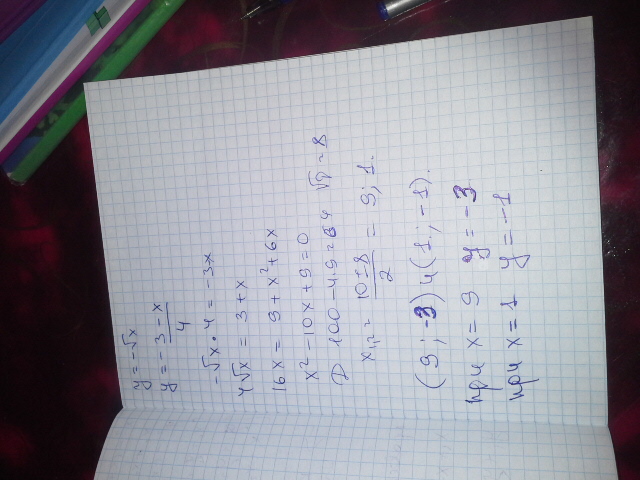 y = -√x
y = (-3-x)/4
-√x • 4 = -3x
4√x = 3+x
16x = 9+x²+6x
x²-10x+9=0
D 100-4·9=64 √D=8
x₁,₂ = (10±8)/2 = 9; 1.
(9; -3) и (1; -1).
при x = 9 y = -3
при x = 1 y = -1